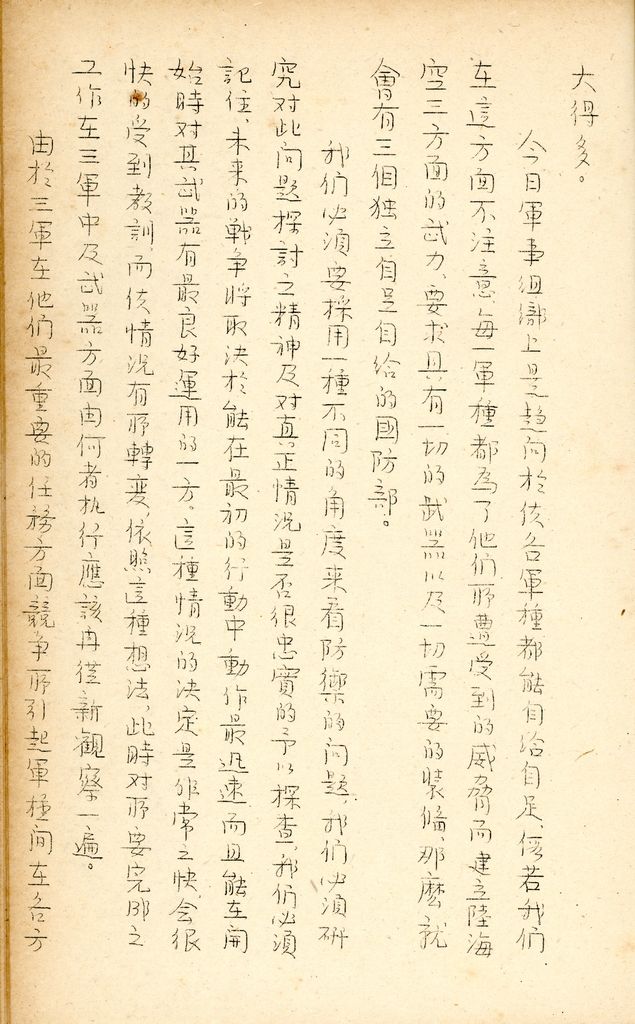 大得多。
今日軍事組織上是趋向於使各軍種都能自給自足、倘若我们
在這方面不注意、每一軍種都為了他们所遭受到的威脅而建立陸海
空三方面的武力、要求具有一切的武器以及一切需要的装俻、那麽就
會有三個独立自足自给的國防部。
我们必須要採用一種不同的角度来看防禦的问题、我们必须研
究对此问題探討之精神及对真正情況是否很忠實的予以探查、我们必須
記住、未来的戰争将取决於能在最初的行動中動作最迅速而且能在開
始時对其武器有最良好運用的一方。這種情况的决定是非常之快、会很
快的受到教訓而使情况有所轉変、依照這種想法、此時对所要完成之
工作在三軍中及武器方面由何者执行應該再從新観察一遍。
由於三軍在他们最重要的任務方面競争所引起軍種间在各方